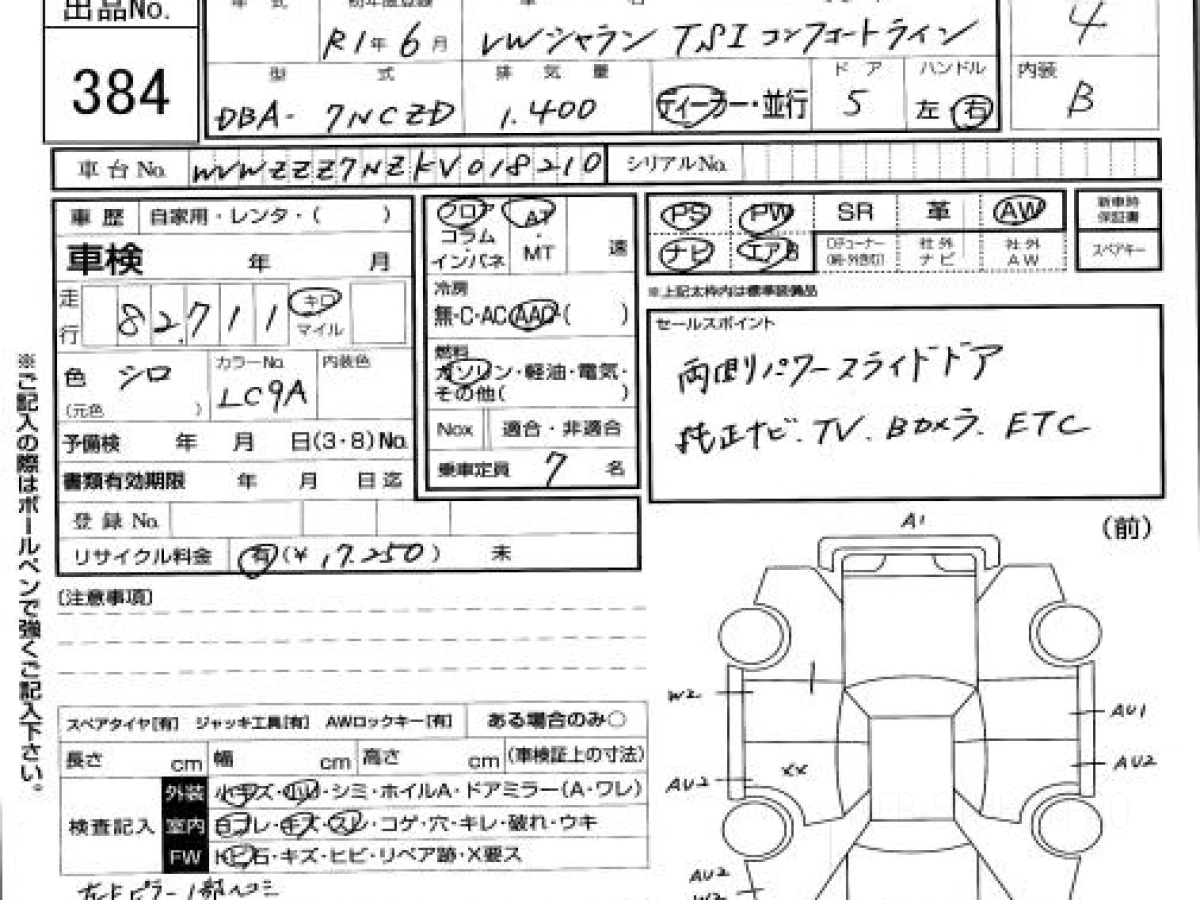 出品No.
384
年 式
初年度登録
R1年6月
車 名
VWシャラン TSI コンフォートライン
4
型 式
DBA- 7NCZD
排 気 量
1.400
ディーラー・並行
ドア
5
ハンドル
左・右
内装
B
車台No. WVWZZZ7NZKV018210
シリアルNo.
車 歴 自家用・レンタ・( )
車検 年 月
走行 82,711 キロ マイル
色 シロ (元色 )
カラーNo. LC9A
内装色
予備検 年 月 日(3・8)No.
書類有効期限 年 月 日迄
登 録 No.
リサイクル料金 有(¥ 17.250) 未
フロア コラム インパネ
AT・MT 速
冷房
無・C・AC・AAC・( )
燃料
ガソリン・軽油・電気・
その他( )
Nox 適合・非適合
乗車定員 7 名
PS PW SR 革 AW
ナビ エアB
社外ナビ 社外AW
新車時保証書
スペアキー
※上記太枠内は標準装備品
セールスポイント
両側パワースライドドア
純正ナビ. TV. Bカメラ. ETC
※ご記入の際はボールペンで強くご記入下さい。
[注意事項]
(前)
A1
W2
AU1
AU2
AU2
XX
AU2
W2
スペアタイヤ[有] ジャッキ工具[有] AWロックキー[有] ある場合のみ○
長さ cm 幅 cm 高さ cm (車検証上の寸法)
検査記入
外装 小キズ・凹・シミ・ホイルA・ドアミラー(A・ワレ)
室内 ヨゴレ・キズ・スレ・コゲ・穴・キレ・破れ・ウキ
FW トビ石・キズ・ヒビ・リペア跡・X要ス
ピラー1部ヘコミ